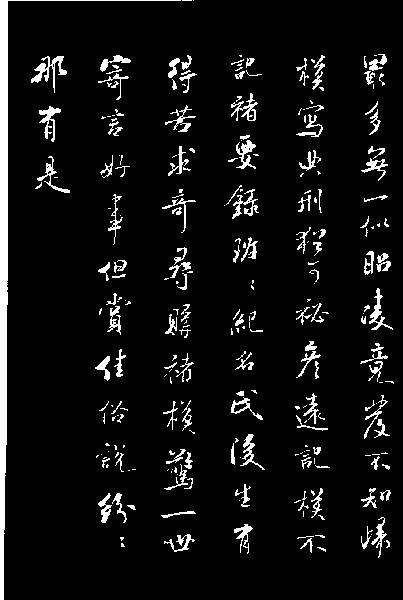 最多無一似昭陵竟發不知歸
模寫典刑猶可秘彥遠記模不
記褚要錄班〻紀名氏後生有
得苦求奇尋購褚模驚一世
寄言好事但賞佳俗說紛〻
那有是